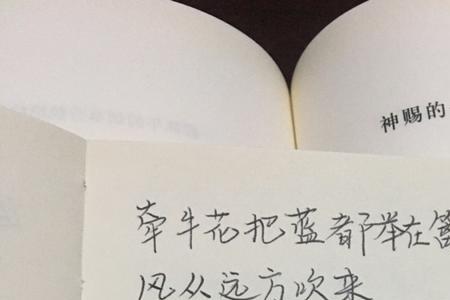 神赐的
牵牛花把蓝都举在
风从远方吹来